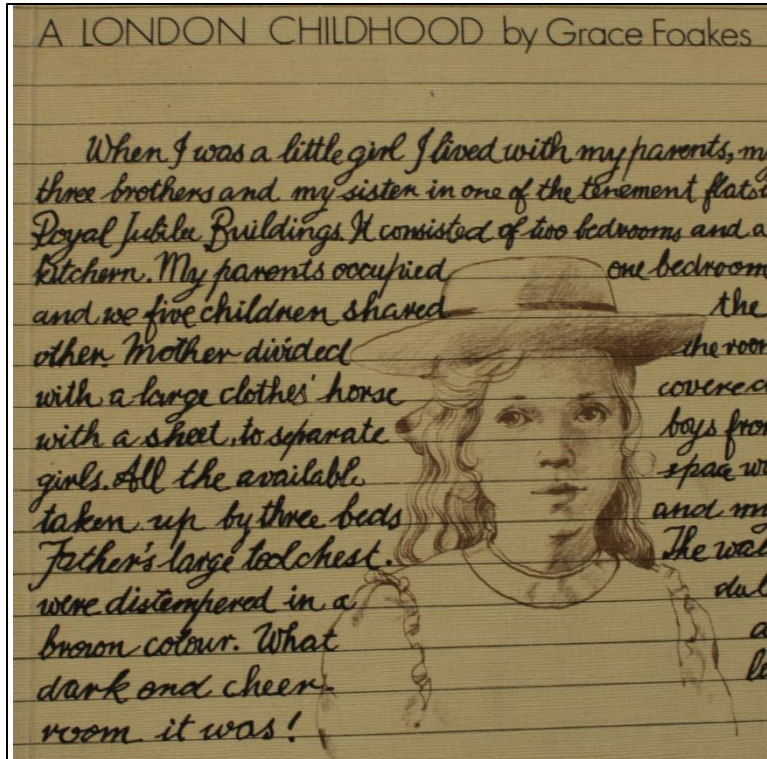 A LONDON CHILDHOOD by Grace Foakes
When I was a little girl I lived with my parents, my
three brothers and my sister in one of the tenement flats
Royal Jubilee Buildings. It consisted of two bedrooms and a
kitchern. My parents occupied one bedroom
and we five children shared the
other. Mother divided the room
with a large clothes' horse covered
with a sheet, to separate boys from
girls. All the available space wa
taken up by three beds and my
Father's large toolchest. The wal
were distempered in a dul
brown colour. What a
dark and cheer- le
room it was!